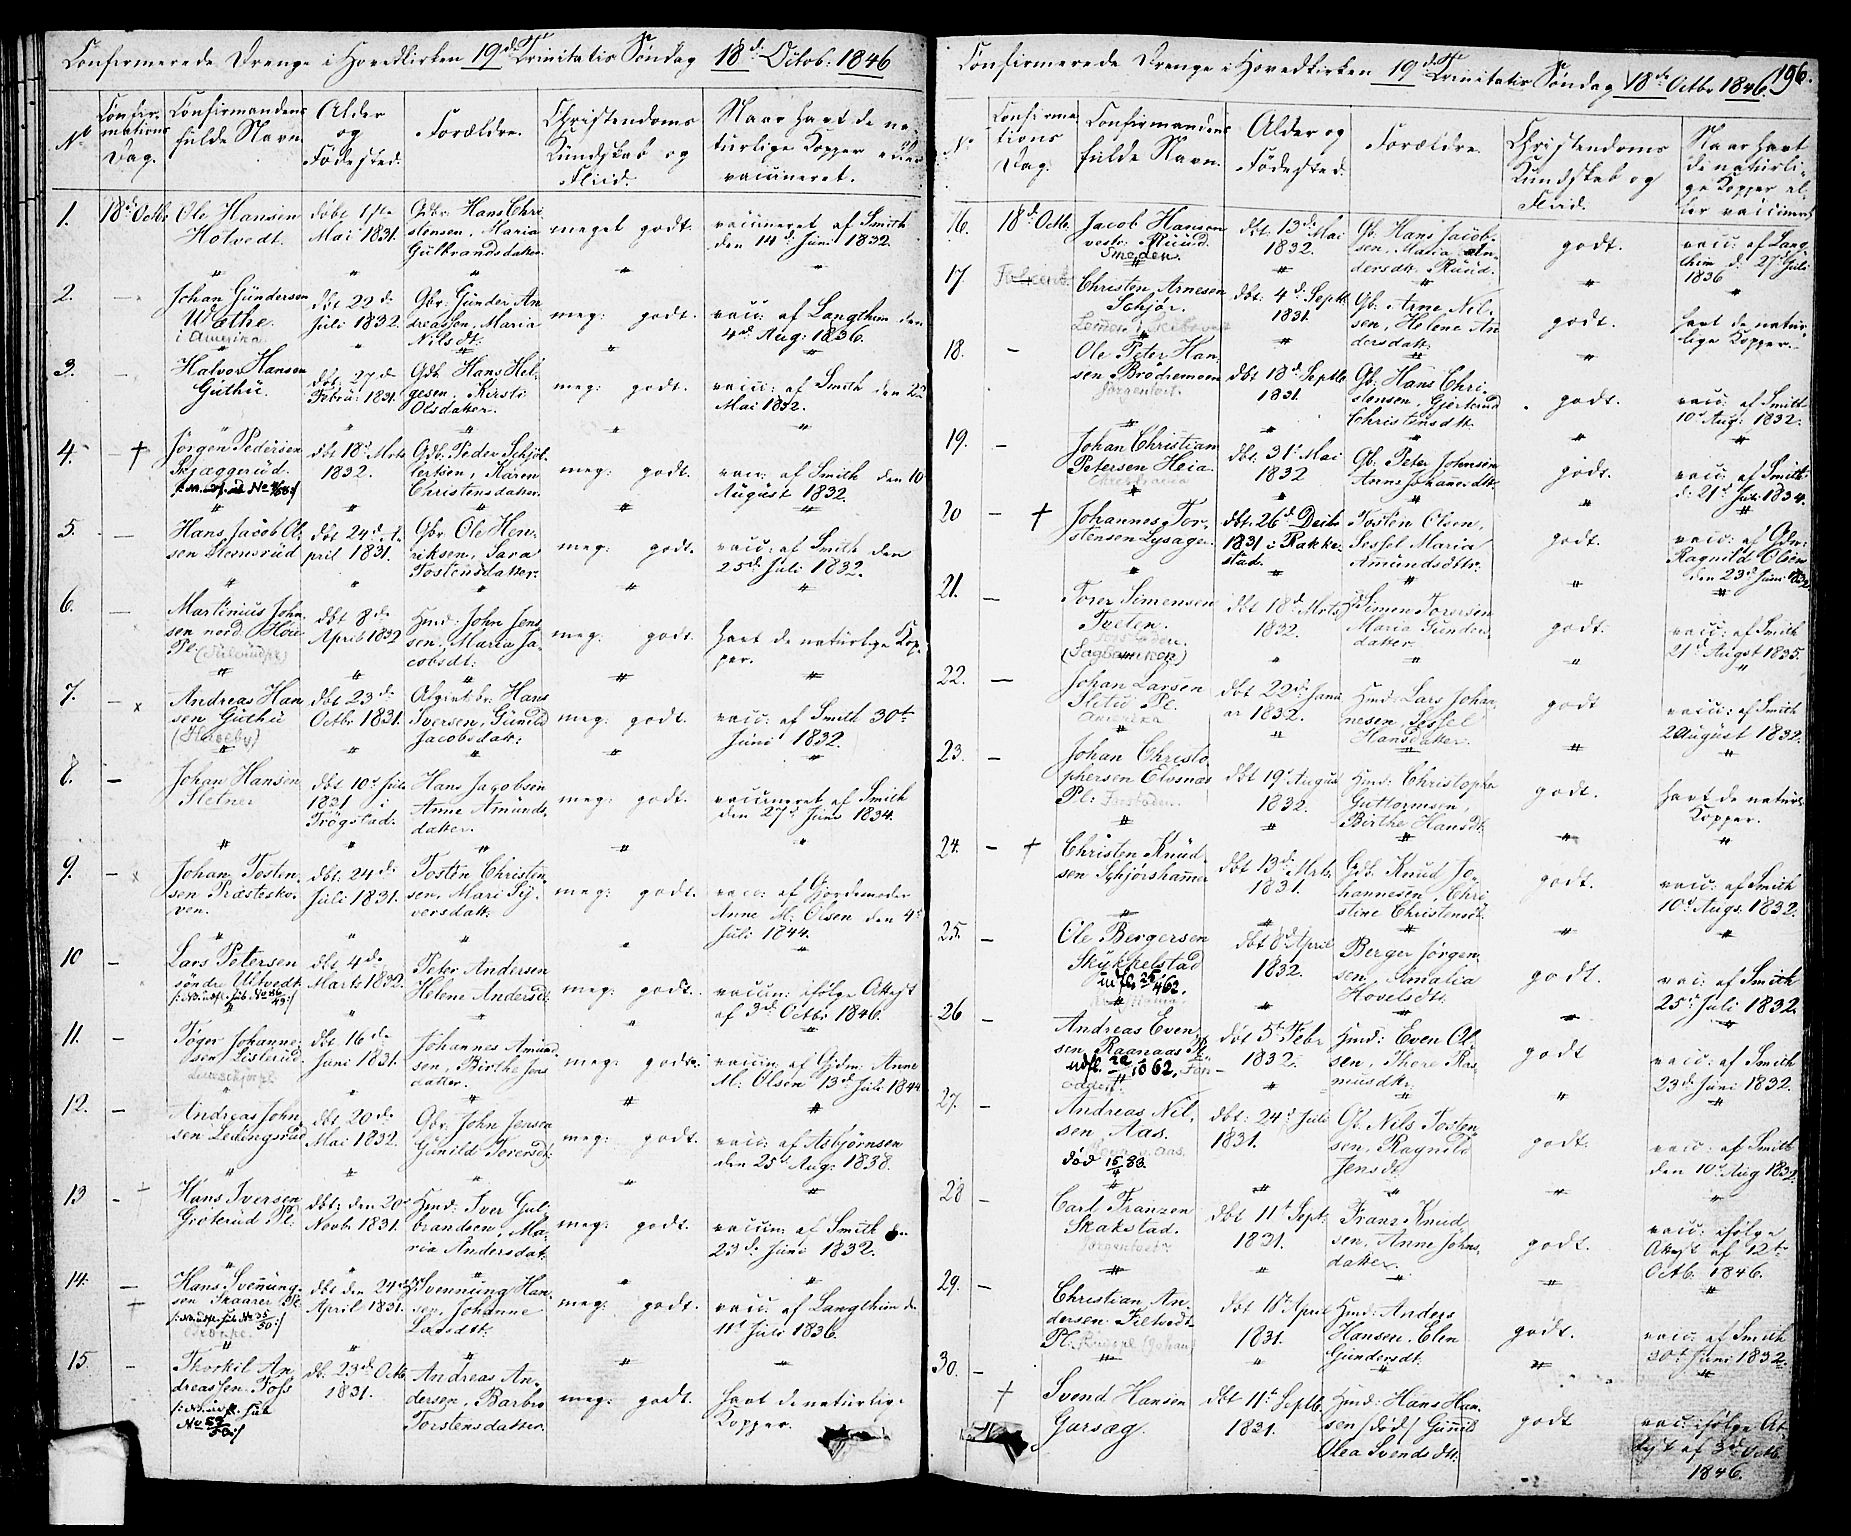 Confirmerede Drenge i Hovedkirken 19de Trinitatis Søndag 18d Octob: 1846
No
Confir-
mations
Dag.
Confirmandens
fulde Navn.
Alder
og
Fødested.
Forældre.
Christendoms
Kundskab og
Fliid.
Naar havt de na-
turlige Kopper eller
vaccineret.
1.
18d Octb
Ole Hansen
Holvedt.
døbt 1ste
Mai 1831.
Gdbr. Hans Chri
stensen, Maria
Gulbrandsdatter.
meget godt.
vaccineret af Smith
den 14d Juni 1832.
2.
Johan Gundersen
Wathe.
i Amerika
dbt 22d
Juli 1832.
Gbr. Gunder An
dreassen, Maria
Nilsdt:
meg: godt.
vacc: af Langthim den
4d Aug: 1836.
3.
Halvor Hansen
Guthu.
dbt. 27d
Febru: 1831.
Gdb. Hans Hel-
gesen, Kirsti
Olsdatter.
meg: godt.
vacc: af Smith den 22
Mai 1832.
4.
†
Jørgen Pedersen
Skjæggerud.
dbt 18d Mrts
1832.
Gdb. Peder Schjöl
lertsen, Karen
Christensdatter.
meg: godt.
vacc: af Smith den 10
August 1832.
5.
Hans Jacob Ol-
sen Stomsrud
dbt 24d A-
pril 1831.
Gbr. Ole Hen-
riksen, Sara
Tostensdatter.
meg: godt.
vacc: af Smith den
25d Juli 1832.
6.
Martinius John
sen nord. Høie
Pl.
dbt 8d
April 1832
Hmd: John Jens
sen, Maria Ja-
cobsdt:
meg: godt.
havt de naturlige Kop-
per.
7.
x
Andreas Han
sen Guthu
(Haseby)
dbt 23d
Octbr 1831.
Afgivt. br. Hans
Iversen, Gunild
Jacobsdatt:
meg: godt.
vacc: af Smith 30te
Juni 1832.
8.
Johan Hansen
Sletner
dbt 10d Juli
1831 i
Trögstad.
Hans Jacobsen
Anne Amunds-
datter.
meg: godt.
vaccineret af Smith
den 27d Juni 1834.
9.
x
Johan Tosten-
sen Præstesko-
ven.
dbt. 24d
Juli 1831.
Tosten Christen-
sen, Mari Sy-
versdatt:
meg: godt.
vacc: af Gjordemoder
Anne M: Olsen den 4d
Juli 1844.
10
Lars Petersen
søndre Ultvedt
dbt 4d
Marts 1832.
Peter Andersen
Helene Andersd
meg: godt.
vaccin: ifølge Attest
af 3d Octbr 1846.
11.
Töger Johanne-
sen Listerud
dbt 16d
Juni 1831.
Johannes Amund
sen, Birthe Jens
datter.
meg: godt.
vaccin af Gjdm. Anne
M: Olsen 13d Juli 1844
12.
Andreas John
sen Ledingsrud
dbt. 20d
Mai 1832.
Gbr. John Jensen
Gunild Torersdt:
meg: godt.
vacc: af Asbjørnsen
den 25d Aug: 1838.
13
Hans Iversen
Groterud Pl.
dbt: den 20d
Novbr 1831.
Hmd: Iver Gul-
brandsen, Ma-
ria Andersdatt.
meg: godt.
vaccin: af Smith den
23d Juni 1832.
14.
†
Hans Svennung-
sen Skaarer Pl
dbt den 24d
April 1831.
Svennung Han-
sen, Johanne
Larsdtt.
meg: godt.
vacc: af Langthim d.
11d Juli 1836.
15.
Thorkil An
dreassen Foss
No 52/50:/
db. 23d Octb
1831.
Andreas An-
dersen, Barbro
Torstensdatter.
meg: godt.
havt de naturlige
Kopper.
196.
Confirmerede Drenge i Hovedkirken 19de Trinitatis Søndag 18de Octbr 1846.
No
Confirma
tions
Dag.
Confirmandens
fulde Navn.
Alder og
Födested.
Forældre.
Christendoms
Kundskab og
Fliid.
Naar havt
de naturli-
ge Kopper el-
ler vaccineret
16.
18d Octb.
Jacob Hansen
vestr: Ruud
Smeden.
dbt. 13d Mai
1832.
Gb. Hans Jacob-
sen, Maria An-
dersdtr. Ruud.
godt.
vacc: af Lang
thim d. 27d Juli
1836
17
Christen Arnesen
Schjør.
dbt: 4d Septb
1831.
Gb. Arne Nil-
sen, Helene An
dersdatt.
godt.
havt de natur-
lige Kopper.
18.
Ole Peter Han-
sen Brödremoen
Jørgentvet.
dbt 18d Septb.
1831.
Gb: Hans Chri-
stensen, Gjertrud
Christensdtt.
godt.
vacc. af Smith
10d Aug: 1832.
19.
Johan Christian
Petersen Heia
Christiania
dbt. 31d Mai
1832
Gb. Peter Johnsen
Anne Johannesdtt.
godt.
vacc. af Smith
d: 21d Juli 1834.
20
†
Johannes Tor-
stensen Lysager
dbt: 26d Decbr
1831 i Rakke-
stad.
Tosten Olsen,
Sissel Maria
Amundsdttr.
godt.
vacc. af Gdm:
Ragnild Olsen
den 23d Juni 1832
21.
Torer Simensen
Tveten.
dbt 18d Mrts
1832.
Simen Torersen
Maria Gunders
datter.
godt.
vacc: af Smith
21d Augst 1835.
22.
Johan Larsen
Slitu Pl.
Amerika
dbt 22d Janu
ar 1832.
Hmd: Lars Johan
nesen, Sissel
Hansdatter.
godt
vacc: af Smith
2 August 1832.
23.
Johan Christo-
phersen Elvsnæs
Pl:
dbt 19d August
1832.
Hmd: Christopher
Guttormsen,
Birthe Hansdt.
godt.
havt de naturl.
Kopper.
24.
†
Christen Knud-
sen Schjörshamer
dbt 13d Mrts
1831.
Gdb. Knud Jo-
hannesen, Chri-
stine Christensdt.
godt.
vacc: af Smith
10d Augs: 1832.
25.
Ole Bergersen
Skykkelstad
udfl: 25/4 62.
dbt 8d April
1832.
Berger Jørgen-
sen, Amalia
Hovelsdt:
godt.
vac: af Smith
25d Juli 1832.
26
Andreas Even
sen Raanaas Pl.
dbt 5te Febr
1832.
Hmd: Even Ol-
sen, Thore Ras-
musdtr.
godt
vacc: af Smith
23d Juni 1832.
27.
Andreas Nil-
sen, Aas.
död 15/4 83.
dbt: 24d Juli
1831.
Gb. Nils Tosten
sen, Ragnild
Jensdt.
godt.
vacc: af Smith
den 10d Aug 1832
28
Carl Franzen
Skakstad.
Jørgentvet
dbt 11te Sept:
1831.
Frans Knud
sen, Anne Johns
datter.
godt.
vacc: ifølge
Attest af 12te
Octb. 1846.
29.
Christian An-
dersen Tiltvedt
Pl.
dbt 10d April
1831.
Hmd: Anders
Hansen, Elen
Gundersdt.
godt.
vacc: af Smith
30te Juni 1832.
30.
†
Svend Hansen
Garsæg.
dbt 11te Septb.
1831.
Hmd: Hans Han-
sen /død/ Gunild
Olea Svendsdtt.
godt
vacc: ifølge At-
test af 3d Octb.
1846.